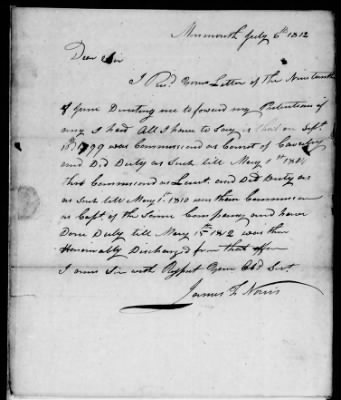 Monmouth July 6th 1812
Dear Sir
I Recd. Your Letter of the Nineteenth
of June Directing me to forward my Pretentions if
any I had All I have to Say is that on Sept.
10th 1799 was Commissiond as Cornet of Cavalry
and Did Duty as Such till May 1st 1804
then Commissiond as Lieut. and Did Duty as
as Such till May 1st. 1810 was then Commission
as Capt. of the Same Company and have
Done Duty till May 15th 1812 was then
Honorably Discharged from that offe
I am Sir with Respect Your Obd Servt.
James F Norris